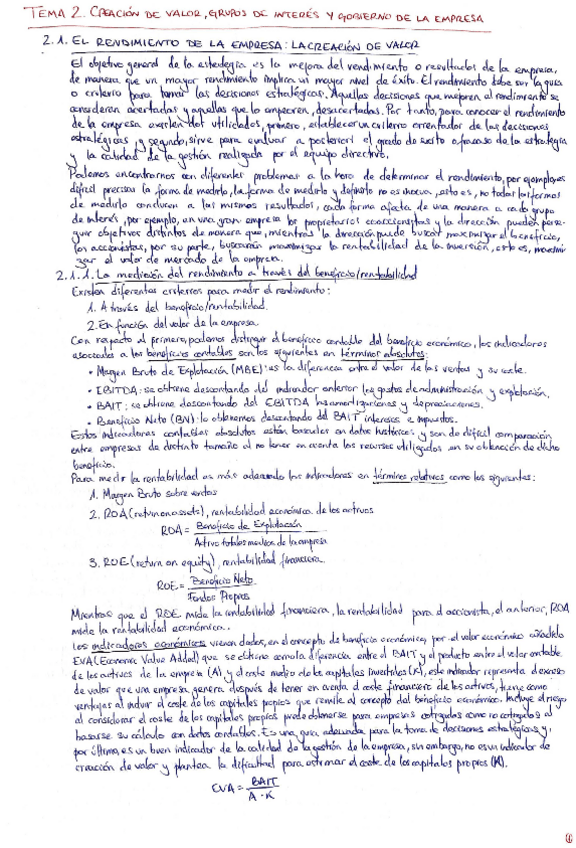 TEMA 2. CREACIÓN DE VALOR, GRUPOS DE INTERÉS Y GOBIERNO DE LA EMPRESA
2.1. EL RENDIMIENTO DE LA EMPRESA: LA CREACIÓN DE VALOR
El objetivo general de la estrategia es la mejora del rendimiento o resultados de la empresa,
de manera que un mayor rendimiento implica un mayor nivel de éxito. El rendimiento debe ser la guía
o criterio para tomar las decisiones estratégicas. Aquellas decisiones que mejoren el rendimiento se
consideran acertadas y aquellas que lo empeoren, desacertadas. Por tanto, para conocer el rendimiento
de la empresa existen dos utilidades, primero, establecer un criterio orientador de las decisiones
estratégicas, y segundo, sirve para evaluar a posteriori el grado de éxito o fracaso de la estrategia
y la calidad de la gestión realizada por el equipo directivo.
Podemos encontrarnos con diferentes problemas a la hora de determinar el rendimiento, por ejemplo, es
difícil precisar la forma de medirlo, la forma de medirlo y definirlo no es inocua, esto es, no todas las formas
de medirlo conducen a los mismos resultados, cada forma afecta de una manera a cada grupo
de interés, por ejemplo, en una gran empresa los propietarios o accionistas y la dirección pueden perse-
guir objetivos distintos de manera que, mientras la dirección puede buscar maximizar el beneficio,
los accionistas, por su parte, buscarán maximizar la rentabilidad de la inversión, esto es, maximi-
zar el valor de mercado de la empresa.
2.1.1. La medición del rendimiento a través del beneficio/rentabilidad
Existen diferentes criterios para medir el rendimiento:
1. A través del beneficio/rentabilidad.
2. En función del valor de la empresa.
Con respecto al primero, podemos distinguir el beneficio contable del beneficio económico, los indicadores
asociados a los beneficios contables son los siguientes en términos absolutos:
• Margen Bruto de Explotación (MBE): es la diferencia entre el valor de las ventas y su coste.
• EBITDA: se obtiene descontando del indicador anterior los gastos de administración y explotación.
• BAIT: se obtiene descontando del EBITDA las amortizaciones y depreciaciones.
• Beneficio Neto (BN): lo obtenemos descontando del BAIT intereses e impuestos.
Estos indicadores contables absolutos están basados en datos históricos y son de difícil comparación
entre empresas de distinto tamaño al no tener en cuenta los recursos utilizados en su obtención de dicho
beneficio.
Para medir la rentabilidad es más adecuado los indicadores en términos relativos como los siguientes:
1. Margen Bruto sobre ventas
2. ROA (return on assets), rentabilidad económica de los activos
ROA = Beneficio de Explotación
Activo totales medios de la empresa
3. ROE (return on equity), rentabilidad financiera.
ROE = Beneficio Neto
Fondos Propios
Mientras que el ROE mide la rentabilidad financiera, la rentabilidad para el accionista, el anterior, ROA
mide la rentabilidad económica.
Los indicadores económicos vienen dados, en el concepto de beneficio económico, por el valor económico añadido
EVA (Economic Value Added) que se obtiene como la diferencia entre el BAIT y el producto entre el valor contable
de los activos de la empresa (A) y el coste medio de los capitales invertidos (K), este indicador representa el exceso
de valor que una empresa genera después de tener en cuenta el coste financiero de los activos, tiene como
ventajas al incluir el coste de los capitales propios que remite al concepto del beneficio económico. Incluye el riesgo
al considerar el coste de los capitales propios, puede obtenerse para empresas cotizadas como no cotizadas al
basarse su cálculo con datos contables. Es una guía adecuada para la toma de decisiones estratégicas y,
por último, es un buen indicador de la calidad de la gestión de la empresa, sin embargo, no es un indicador de
creación de valor y plantea la dificultad para estimar el coste de los capitales propios (K).
EVA = BAIT
A · K